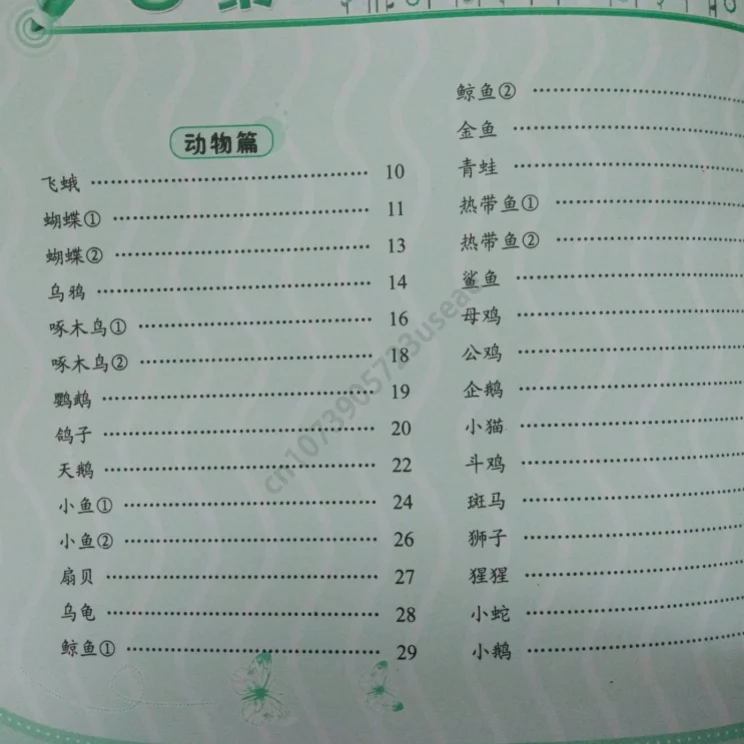 动物篇
飞蛾 10
蝴蝶① 11
蝴蝶② 13
乌鸦 14
啄木鸟① 16
啄木鸟② 18
鹦鹉 19
鸽子 20
天鹅 22
小鱼① 24
小鱼② 26
扇贝 27
乌龟 28
鲸鱼① 29
鲸鱼②
金鱼
青蛙
热带鱼①
热带鱼②
鲨鱼
母鸡
公鸡
企鹅
小猫
斗鸡
斑马
狮子
猩猩
小蛇
小鹅